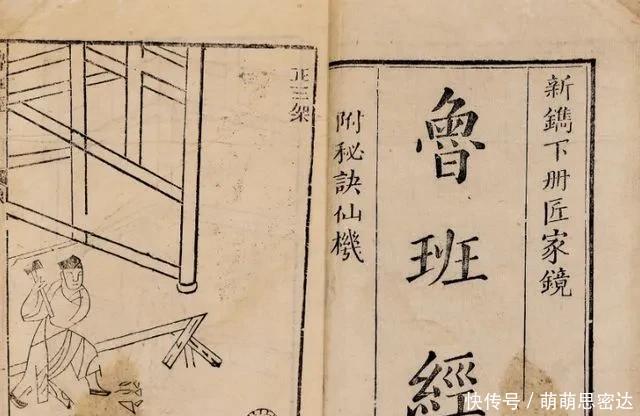 新鐫下冊匠家鏡
魯班經
附秘訣仙機
正三架
快传号／萌萌思密达